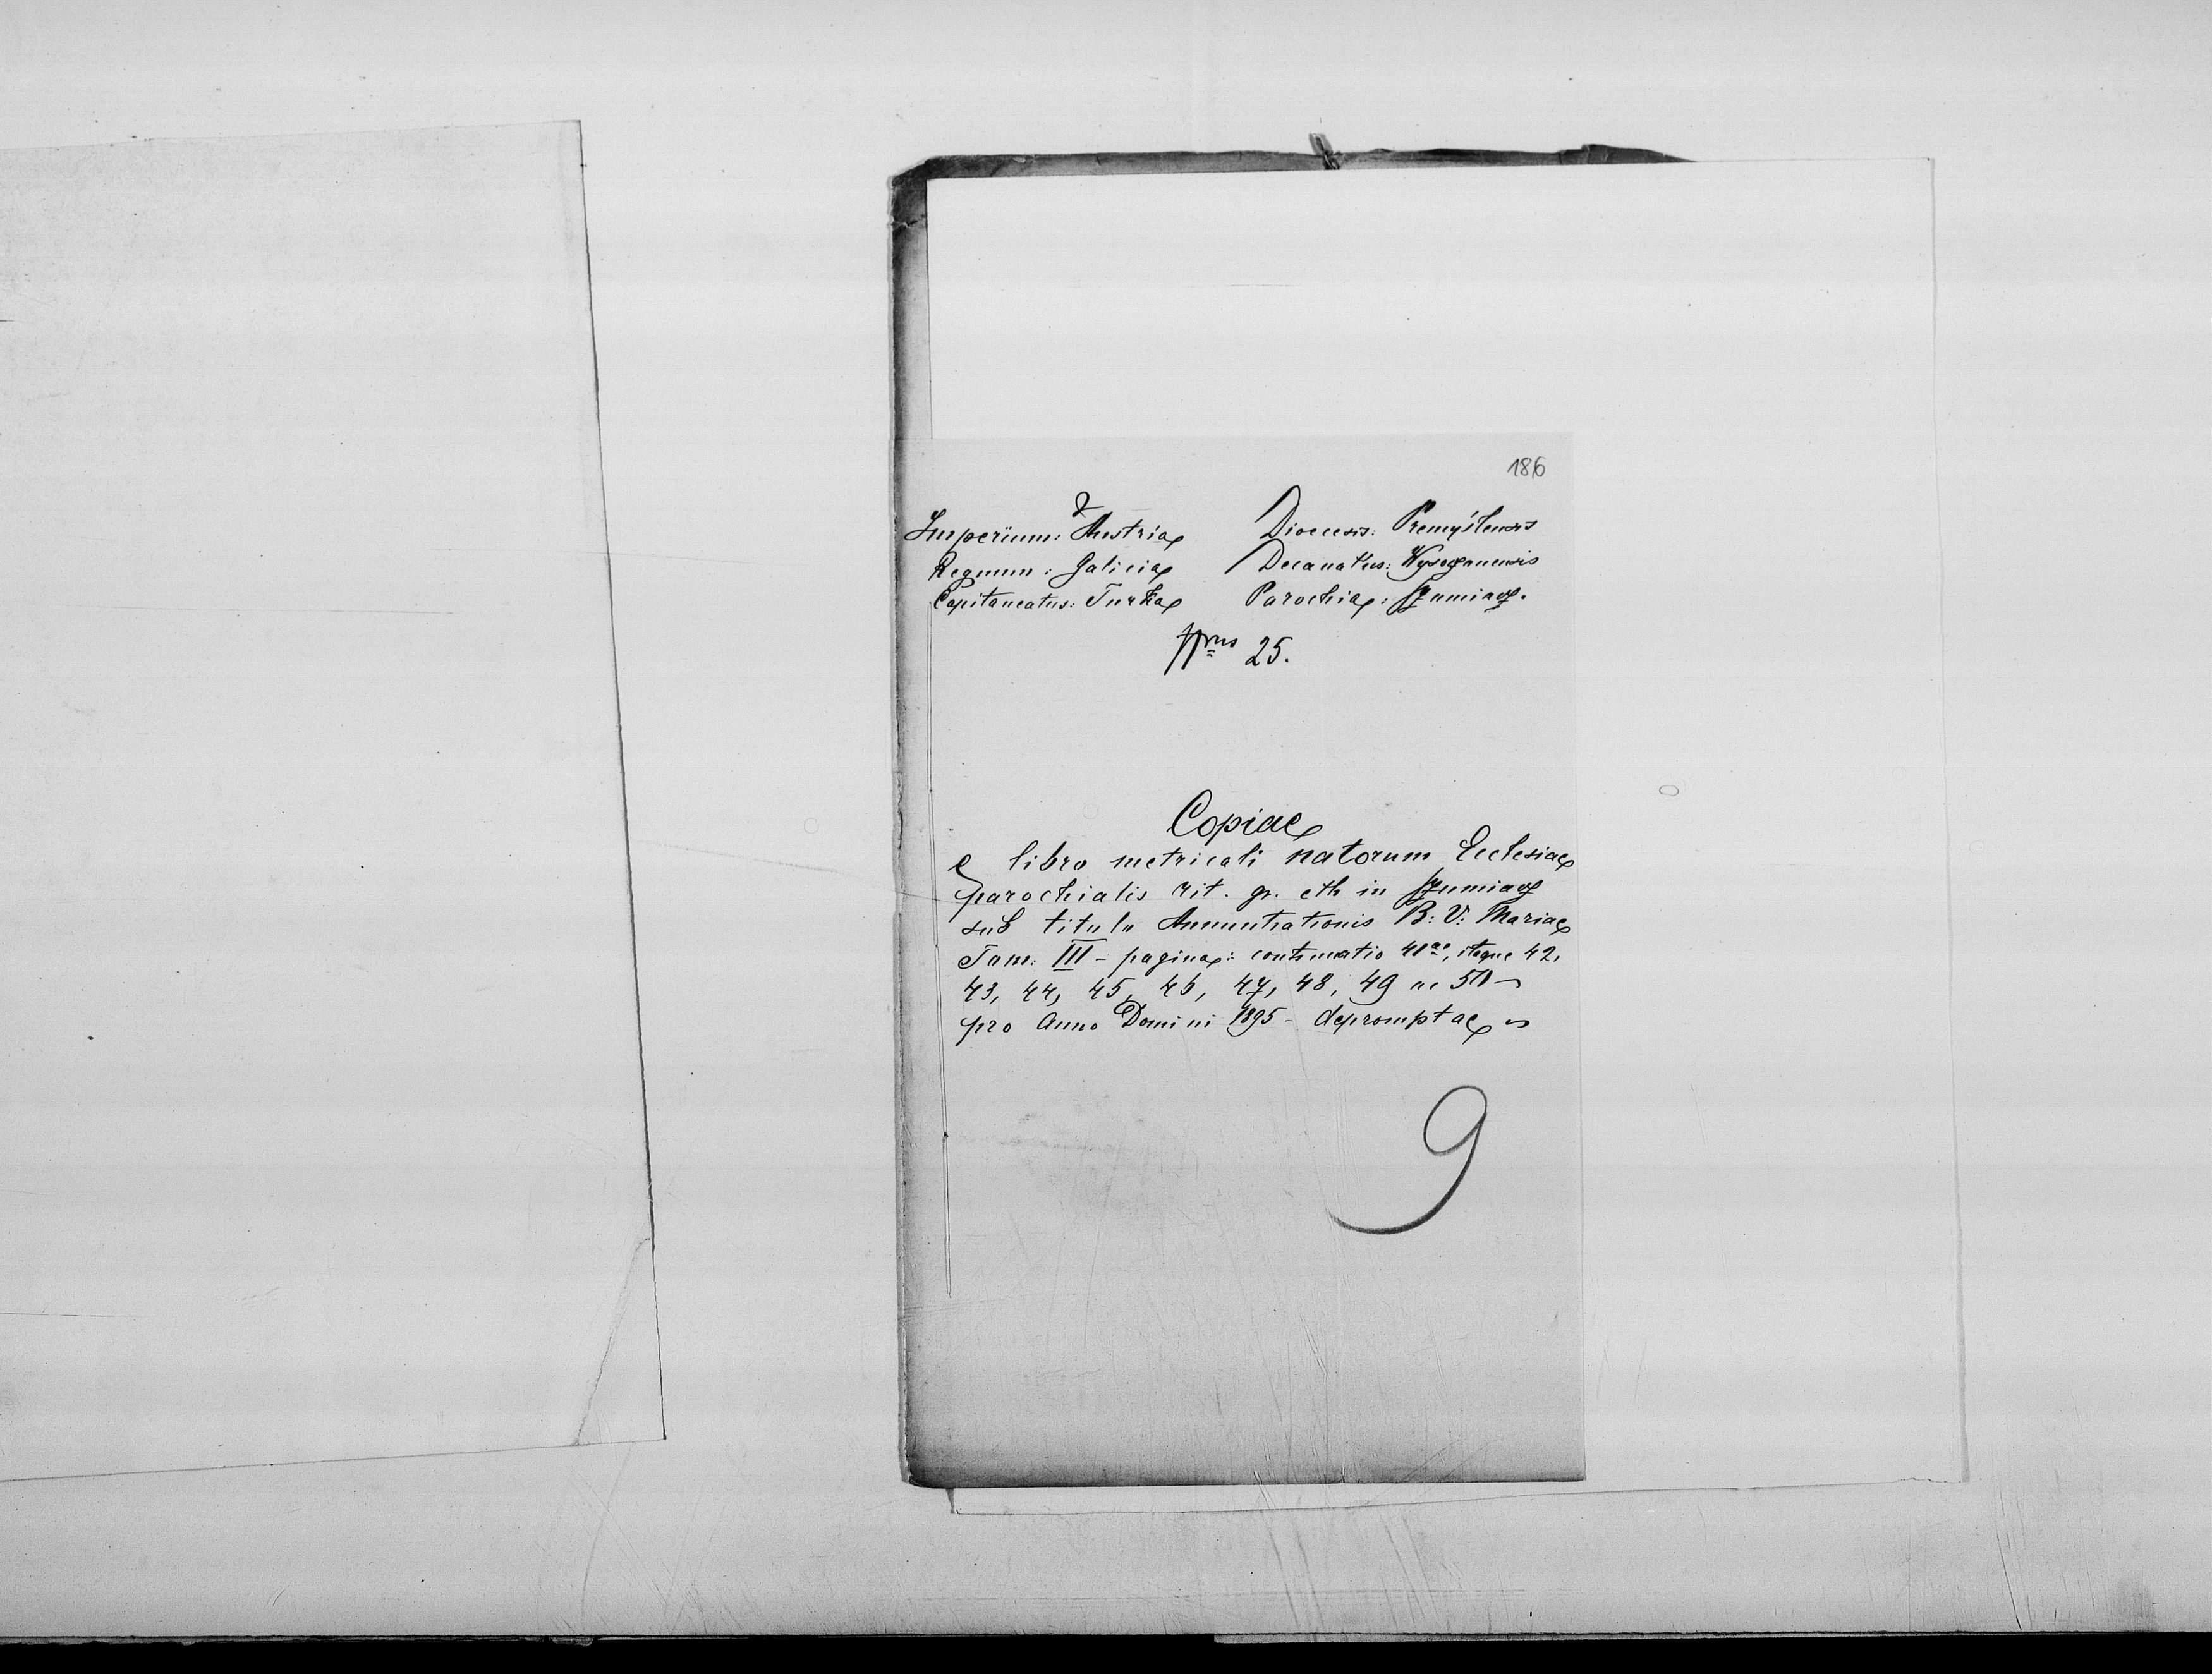 186
Imperium: Austria Dioecesis: Premyślensis
Regnum: Galicia Decanatus: Wysoczanensis
Capitaneatus: Turka Parochia: Szumiacz.
Nrus 25.
Copiae
e libro metricali natorum Ecclesiae
parochialis rit. gr. cth in Szumiacz
sub titulo Annuntiationis B: V: Mariae
Tom: III - pagina: continuatio 41ae, itque 42,
43, 44, 45, 46, 47, 48, 49 ac 50 -
pro Anno Domini 1895 - depromptae
9